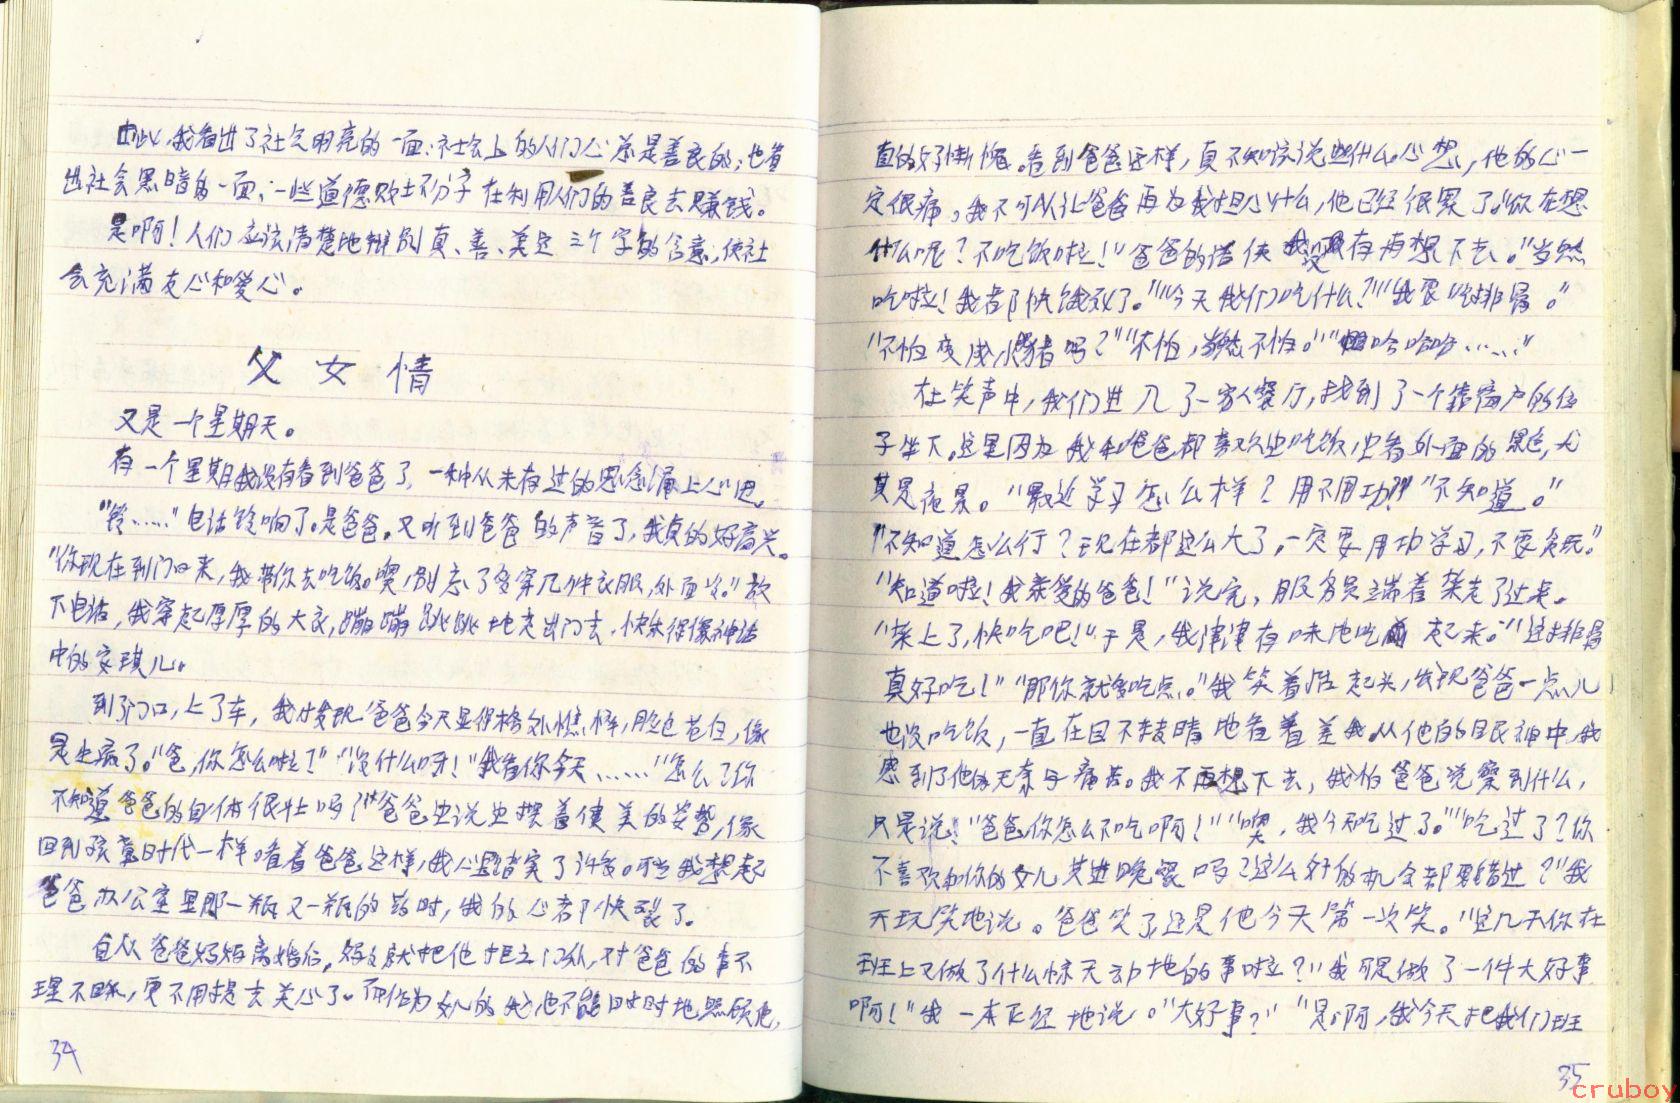 由此,我看出了社会明亮的一面:社会上的人们心总是善良的;也看
出社会黑暗的一面:一些道德败坏分子在利用人们的善良去赚钱。
是啊!人们应该清楚地辨别真、善、美这三个字的含意,使社
会充满友心和爱心。
父女情
又是一个星期天。
有一个星期我没有看到爸爸了,一种从未有过的思念涌上心边。
“铃……”电话铃响了。是爸爸。又听到爸爸的声音了,我真的好高兴。
“你现在到门口来,我带你去吃饭。噢,别忘了多穿几件衣服,外面冷。”放
下电话,我穿起厚厚的大衣,蹦蹦跳跳地走出门去,快乐得像神话
中的安琪儿。
到了门口,上了车,我才发现爸爸今天显得格外憔悴,脸色苍白,像
是生病了。“爸,你怎么啦?”“没什么呀!”“我看你今天……”“怎么了你
不知道爸爸的身体很壮吗?”爸爸边说边摆着健美的姿势,像
回到孩童时代一样。看着爸爸这样,我心里踏实了许多。可当我想起
爸爸办公室里那一瓶又一瓶的药时,我的心都快裂了。
自从爸爸妈妈离婚后,妈妈就把他拒之门外,对爸爸的事不
理不睬,更不用提去关心了。而作为女儿的我也不能时时地照顾他,
34
真的好惭愧。看到爸爸这样,真不知该说些什么。心想,他的心一
定很痛。我不可以让爸爸再为我担心什么,他已经很累了。“你在想
什么呢?不吃饭啦!”爸爸的话使我没有再想下去。“当然
吃啦!我都快饿死了。”“今天我们吃什么?”“我要吃排骨。”
“不怕变成小猪吗?”“不怕,当然不怕。”“哈哈哈……”
在笑声中,我们进入了一家餐厅,找到了一个靠窗户的位
子坐下。这是因为我和爸爸都喜欢边吃饭,边看外面的景色,尤
其是夜景。“最近学习怎么样?用不用功?”“不知道。”
“不知道怎么行?现在都这么大了,一定要用功学习,不要贪玩。”
“知道啦!我亲爱的爸爸!”说完,服务员端着菜走了过来。
“菜上了,快吃吧!”于是,我津津有味地吃起来。“这排骨
真好吃!”“那你就多吃点。”我笑着抬起头,发现爸爸一点儿
也没吃饭,一直在目不转睛地看着我。从他的眼神中,我
感到了他的无奈与痛苦。我不再想下去,我怕爸爸觉察到什么,
只是说:“爸爸你怎么不吃啊!”“噢,我今天吃过了。”“吃过了?你
不喜欢和你的女儿共进晚餐吗?这么好的机会都要错过?”我
开玩笑地说。爸爸笑了,这是他今天第一次笑。“这几天你在
班上又做了什么惊天动地的事啦?”“我可是做了一件大好事
啊!”我一本正经地说。“大好事?”“是啊,我今天把我们班
35
cruboy